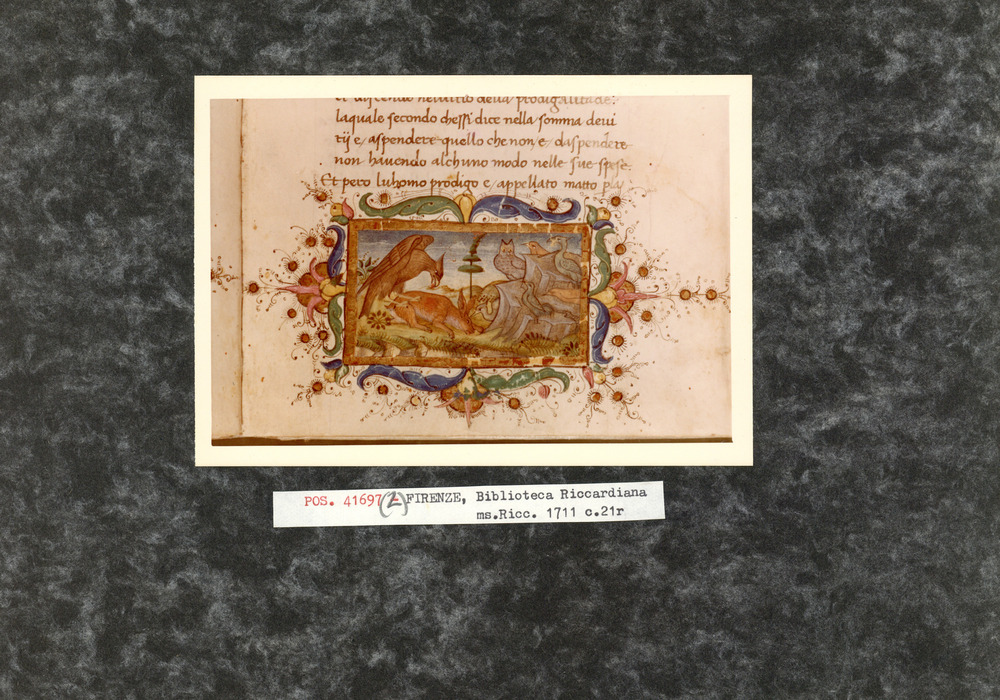 et discende nel vitio della prodigalitade:
laquale secondo chessi dice nella somma deui
tij e, aspendere quello che non e, daspendere
non hauendo alchuno modo nelle sue spese.
Et pero luhomo prodigo e, appellato matto
POS. 41697 (2) - FIRENZE, Biblioteca Riccardiana
ms.Ricc. 1711 c.21r